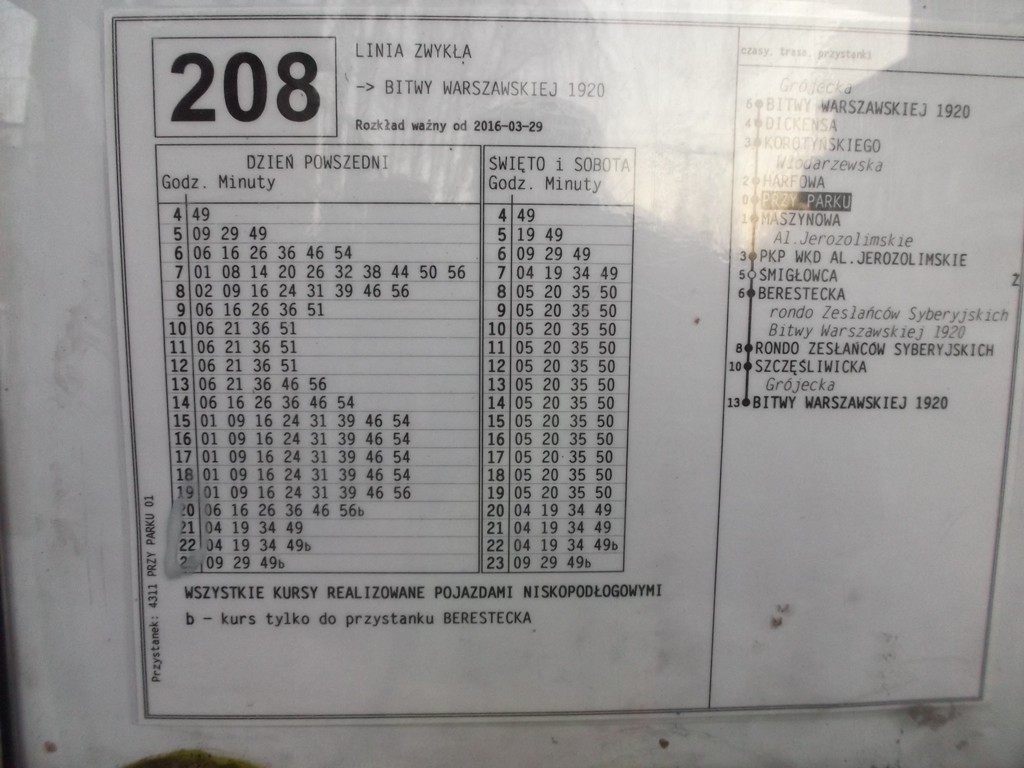 208
LINIA ZWYKŁA
-> BITWY WARSZAWSKIEJ 1920
Rozkład ważny od 2016-03-29
DZIEŃ POWSZEDNI
Godz. Minuty
4 49
5 09 29 49
6 06 16 26 36 46 54
7 01 08 14 20 26 32 38 44 50 56
8 02 09 16 24 31 39 46 56
9 06 16 26 36 51
10 06 21 36 51
11 06 21 36 51
12 06 21 36 51
13 06 21 36 46 56
14 06 16 26 36 46 54
15 01 09 16 24 31 39 46 54
16 01 09 16 24 31 39 46 54
17 01 09 16 24 31 39 46 54
18 01 09 16 24 31 39 46 54
19 01 09 16 24 31 39 46 56
20 06 16 26 36 46 56b
21 04 19 34 49
22 04 19 34 49b
23 09 29 49b
ŚWIĘTO i SOBOTA
Godz. Minuty
4 49
5 19 49
6 09 29 49
7 04 19 34 49
8 05 20 35 50
9 05 20 35 50
10 05 20 35 50
11 05 20 35 50
12 05 20 35 50
13 05 20 35 50
14 05 20 35 50
15 05 20 35 50
16 05 20 35 50
17 05 20 35 50
18 05 20 35 50
19 05 20 35 50
20 04 19 34 49
21 04 19 34 49
22 04 19 34 49b
23 09 29 49b
WSZYSTKIE KURSY REALIZOWANE POJAZDAMI NISKOPODŁOGOWYMI
b – kurs tylko do przystanku BERESTECKA
Przystanek: 4311 PRZY PARKU 01
czasy, trasa, przystanki
Grójecka
6 BITWY WARSZAWSKIEJ 1920
4 DICKENSA
3 KOROTYŃSKIEGO
Włodarzewska
2 HARFOWA
0 PRZY PARKU
1 MASZYNOWA
Al.Jerozolimskie
3 PKP WKD AL.JEROZOLIMSKIE
5 ŚMIGŁOWCA
Ż
6 BERESTECKA
rondo Zesłańców Syberyjskich
Bitwy Warszawskiej 1920
8 RONDO ZESŁAŃCÓW SYBERYJSKICH
10 SZCZĘŚLIWICKA
Grójecka
13 BITWY WARSZAWSKIEJ 1920